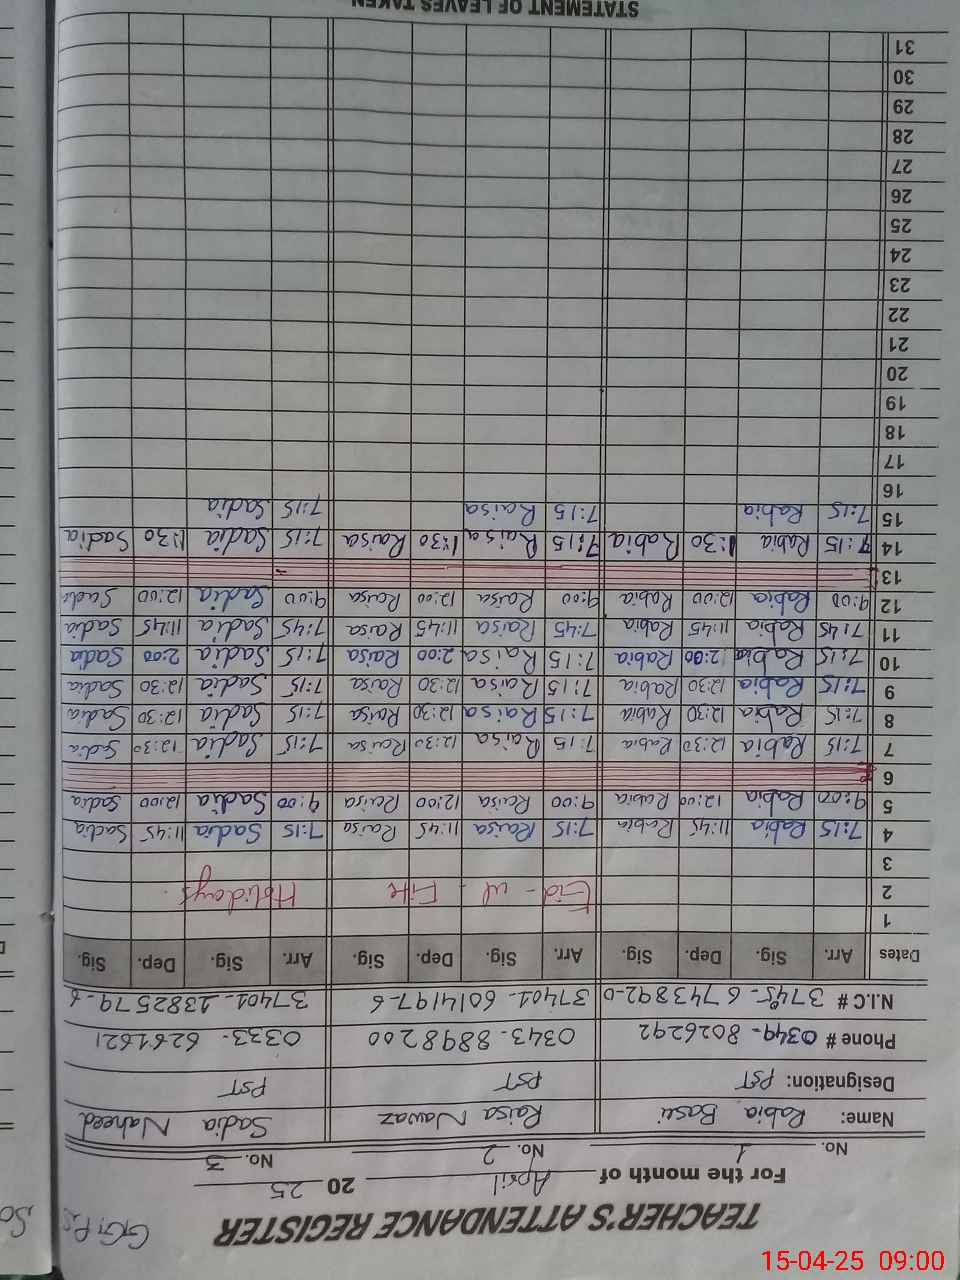 TEACHER'S ATTENDANCE REGISTER
For the month of April 20 25
No. 1 No. 2 No. 3
Name: Rabia Raisa Nawaz Sadia Naheed
Designation: PST PST PST
Phone # 0349-8026292 0343-8898200 0333-6261621
N.I.C # 6743892-0 37401-6014197-6 37401-2382579-6
Dates Arr. Sig. Dep. Sig. Arr. Sig. Dep. Sig. Arr. Sig. Dep. Sig.
1
2 Eid-ul Fitr Holidays.
3
4 7:15 Rabia 11:45 Rabia 7:15 Raisa 11:45 Raisa 7:15 Sadia 11:45 Sadia
5 9:00 Rabia 12:00 Rabia 9:00 Raisa 12:00 Raisa 9:00 Sadia 12:00 Sadia
6
7 7:15 Rabia 12:30 Rabia 7:15 Raisa 12:30 Raisa 7:15 Sadia 12:30 Sadia
8 7:15 Rabia 12:30 Rabia 7:15 Raisa 12:30 Raisa 7:15 Sadia 12:30 Sadia
9 7:15 Rabia 12:30 Rabia 7:15 Raisa 12:30 Raisa 7:15 Sadia 12:30 Sadia
10 7:15 Rabia 2:00 Rabia 7:15 Raisa 2:00 Raisa 7:15 Sadia 2:00 Sadia
11 7:45 Rabia 11:45 Rabia 7:45 Raisa 11:45 Raisa 7:45 Sadia 11:45 Sadia
12 9:00 Rabia 12:00 Rabia 9:00 Raisa 12:00 Raisa 9:00 Sadia 12:00 Sadia
13
14 7:15 Rabia 1:30 Rabia 7:15 Raisa 1:30 Raisa 7:15 Sadia 1:30 Sadia
15 7:15 Rabia 7:15 Raisa 7:15 Sadia
16
17
18
19
20
21
22
23
24
25
26
27
28
29
30
31
STATEMENT OF LEAVES TAKEN
15-04-25 09:00